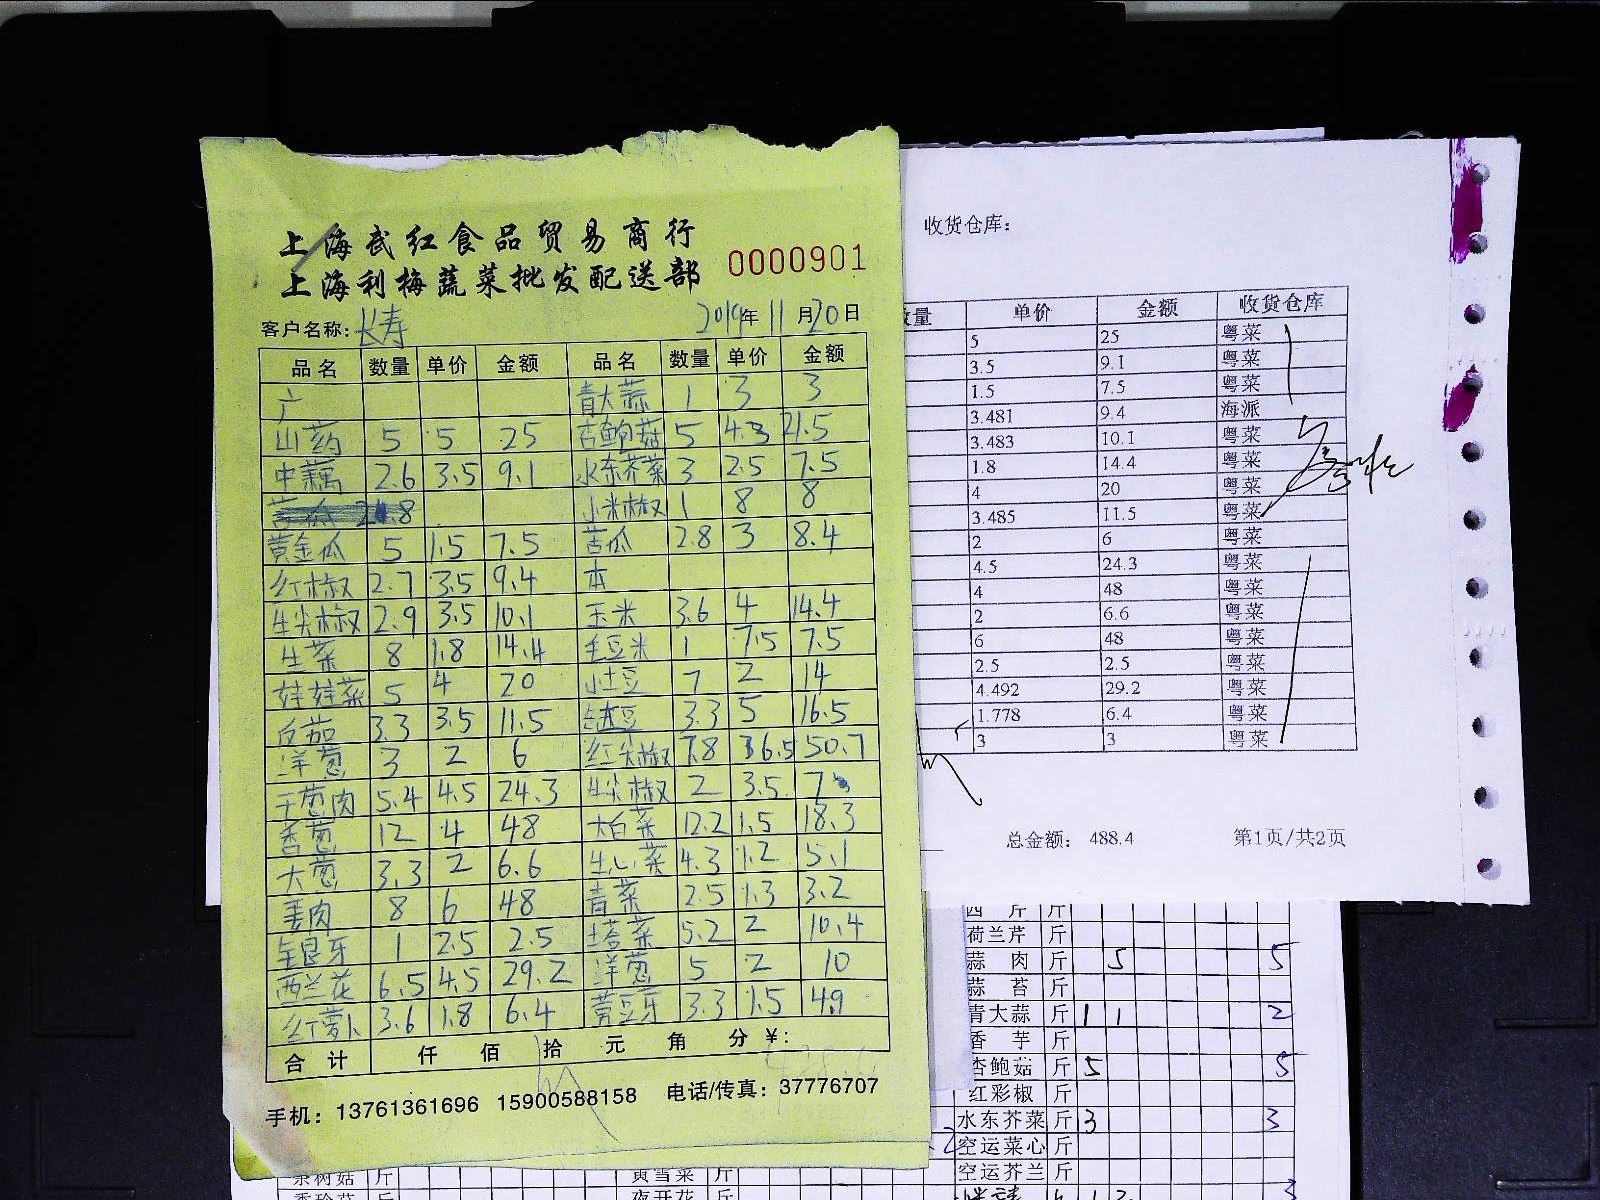 上海武红食品贸易商行
上海利梅蔬菜批发配送部
0000901
客户名称: 长寿 2019年11月20日
品名 数量 单价 金额 品名 数量 单价 金额
广 青大蒜 1 3 3
山药 5 5 25 杏鲍菇 5 4.3 21.5
中藕 2.6 3.5 9.1 水东芥菜 3 2.5 7.5
小米椒 1 8 8
黄金瓜 5 1.5 7.5 苦瓜 2.8 3 8.4
红椒 2.7 3.5 9.4 本
牛尖椒 2.9 3.5 10.1 玉米 3.6 4 14.4
生菜 8 1.8 14.4 毛豆米 1 7.5 7.5
娃娃菜 5 4 20 小土豆 7 2 14
茄 3.3 3.5 11.5 豆 3.3 5 16.5
洋葱 3 2 6 红尖椒 7.8 6.5 50.7
干葱肉 5.4 4.5 24.3 牛尖椒 2 3.5 7
香葱 12 4 48 大白菜 12.2 1.5 18.3
大葱 3.3 2 6.6 生心菜 4.3 1.2 5.1
姜肉 8 6 48 青菜 2.5 1.3 3.2
银牙 1 2.5 2.5 塔菜 5.2 2 10.4
西兰花 6.5 4.5 29.2 洋葱 5 2 10
红萝卜 3.6 1.8 6.4 黄豆牙 3.3 1.5 4.9
合计 仟 佰 拾 元 角 分 ¥:
手机: 13761361696 15900588158 电话/传真: 37776707
收货仓库:
量 单价 金额 收货仓库
5 25 粤菜
3.5 9.1 粤菜
1.5 7.5 粤菜
3.481 9.4 海派
3.483 10.1 粤菜
1.8 14.4 粤菜
4 20 粤菜
3.485 11.5 粤菜
2 6 粤菜
4.5 24.3 粤菜
4 48 粤菜
2 6.6 粤菜
6 48 粤菜
2.5 2.5 粤菜
4.492 29.2 粤菜
1.778 6.4 粤菜
3 3 粤菜
总金额: 488.4 第1页/共2页
西芹 斤
荷兰芹 斤
蒜肉 斤 5 5
蒜苔 斤
青大蒜 斤 1 1 2
香芋 斤
杏鲍菇 斤 5 5
红彩椒 斤
水东芥菜 斤 3 3
空运菜心 斤
空运芥兰 斤
茶树菇 斤 黄雪菜 斤
夜开花 斤